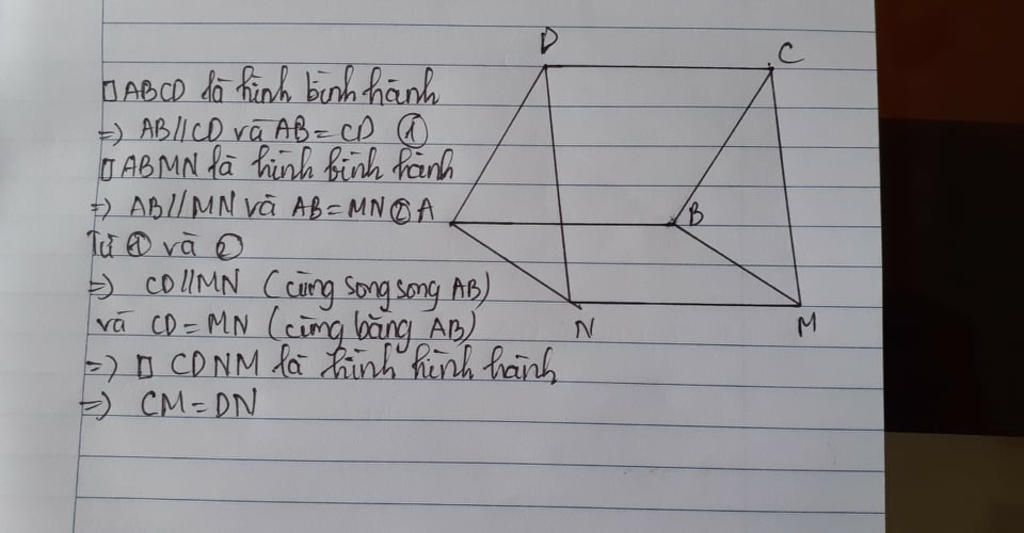 D
C
□ABCD là hình bình hành
=> AB//CD và AB = CD ①
□ABMN là hình bình hành
=> AB//MN và AB = MN ② A
B
Từ ① và ②
=> CD//MN (cùng song song AB)
và CD = MN (cùng bằng AB)
N
M
=> □ CDNM là hình hình hành
=> CM = DN